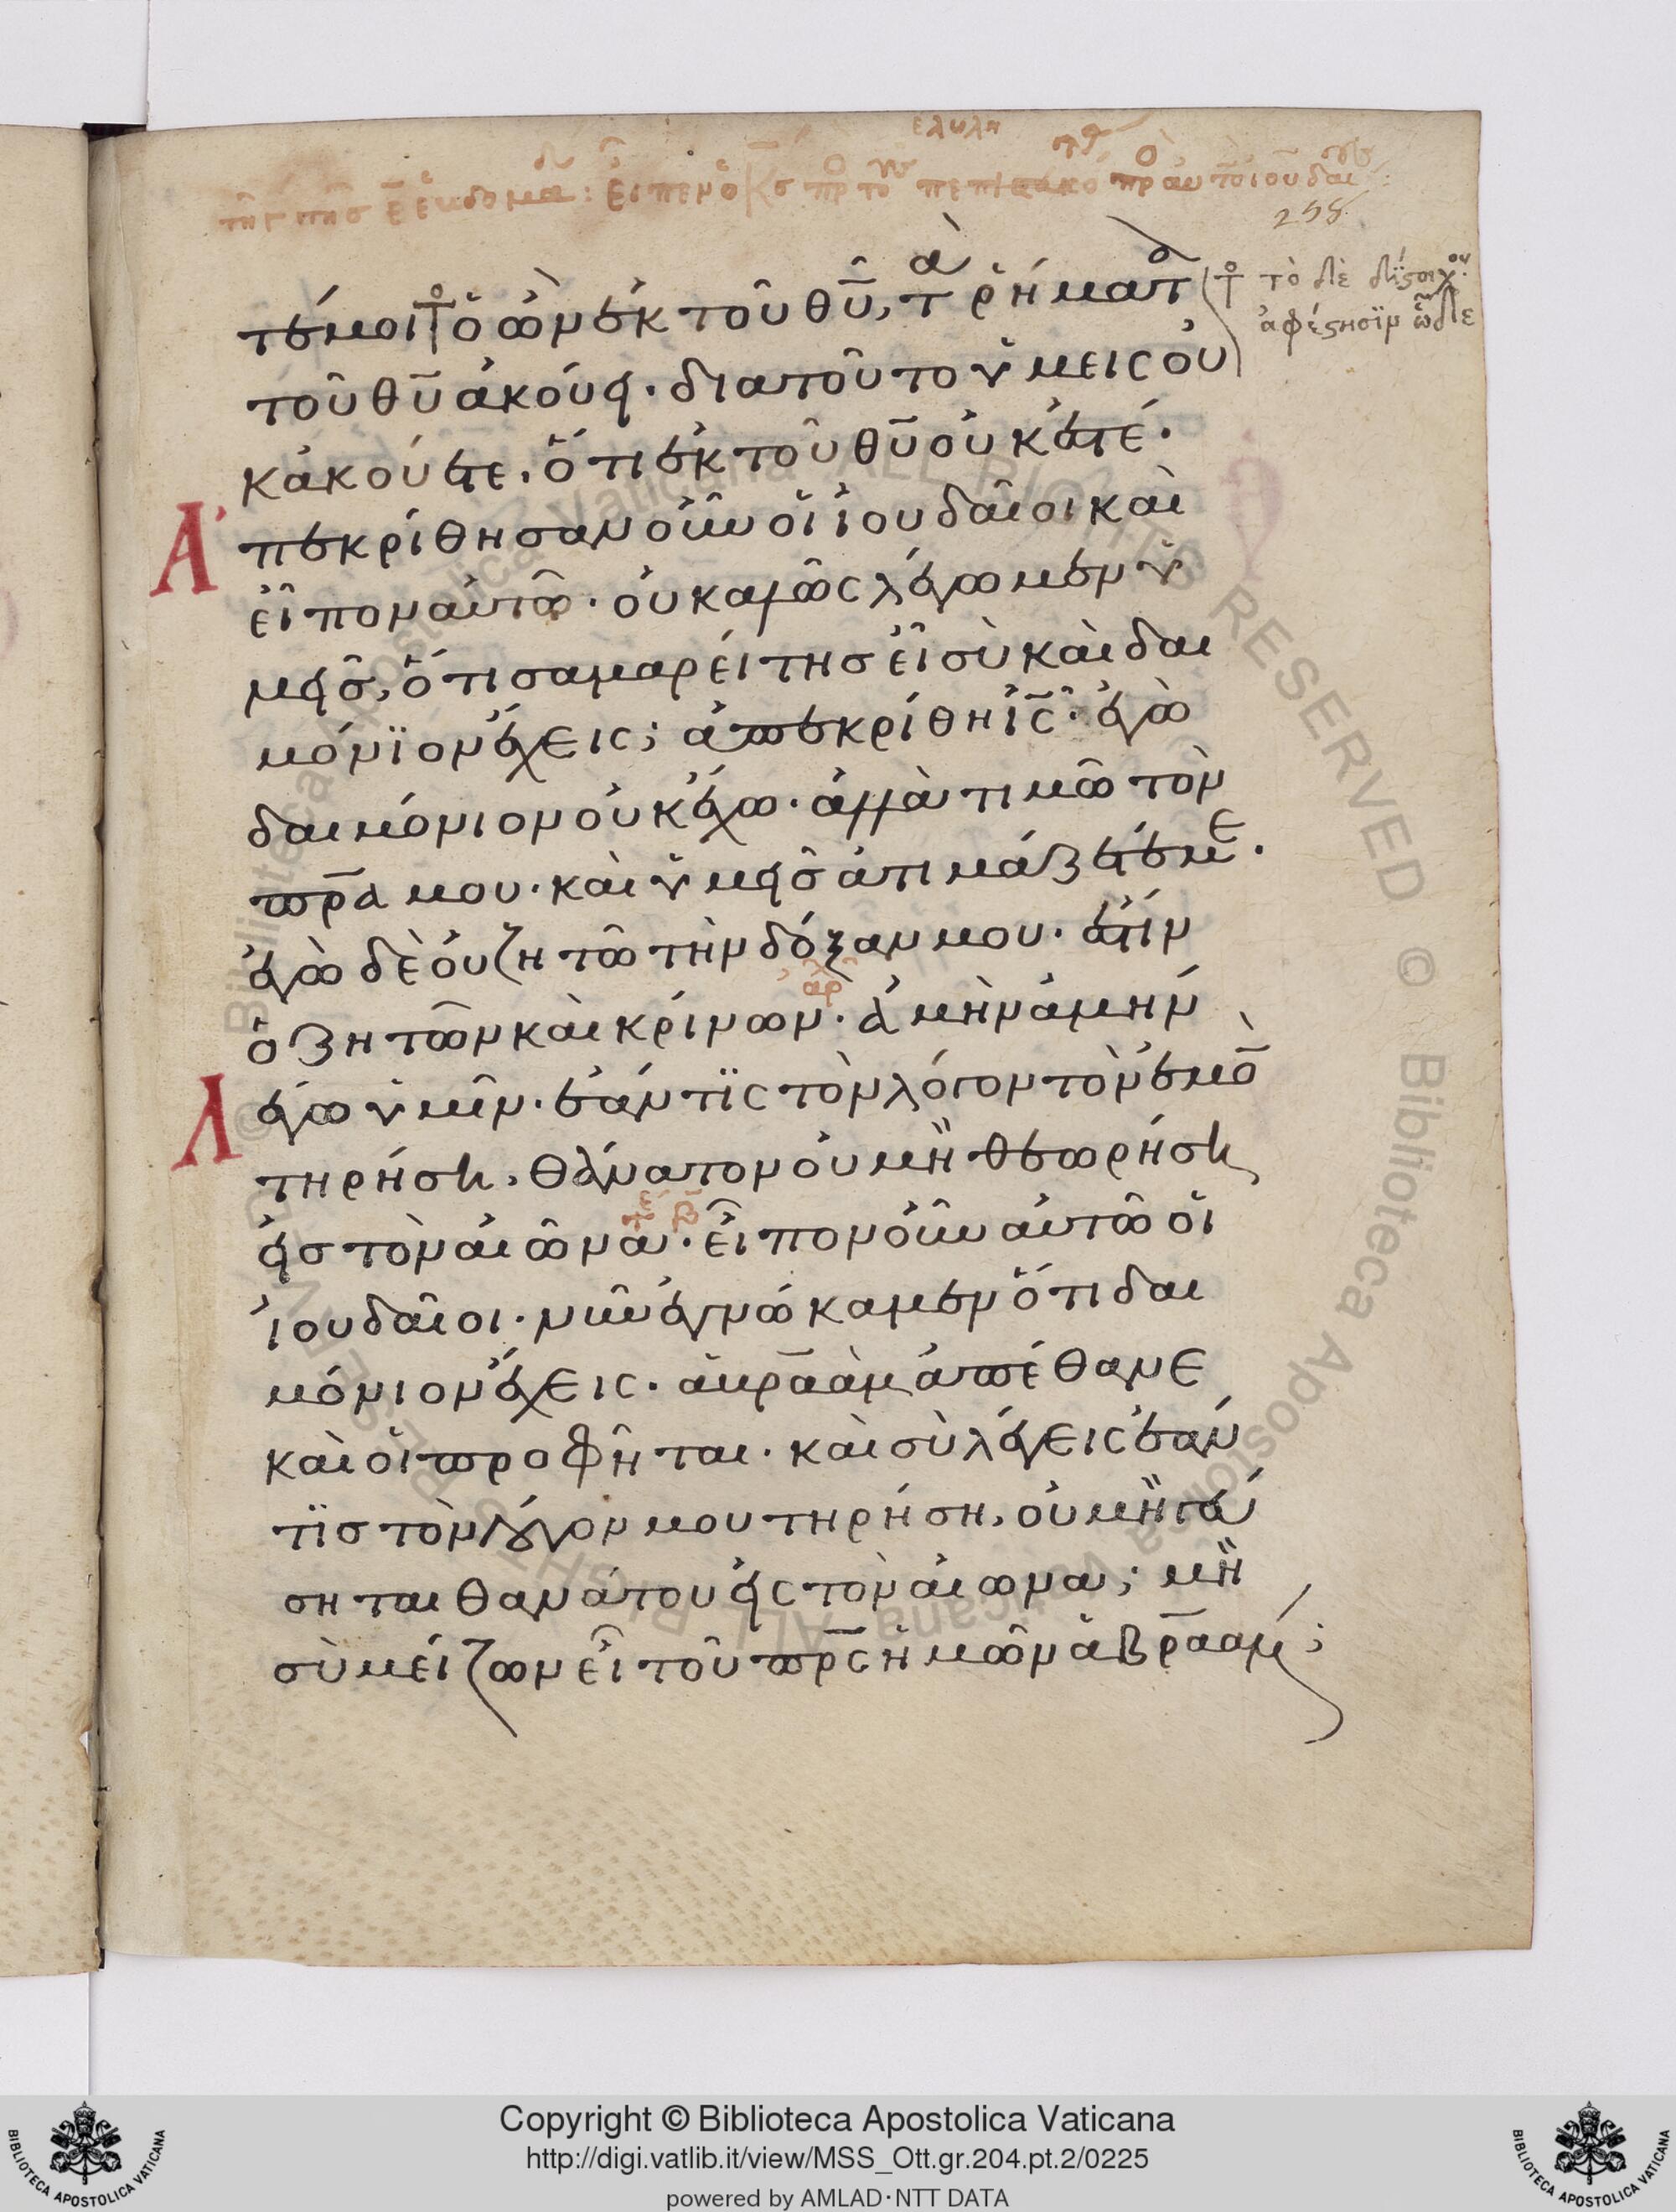 258
τέ μοι ὁ ὢν ἐκ τοῦ θῦ, τὰ ῥήματα
τοῦ θῦ ἀκούει. διατοῦτο ὑμεῖς οὐ
κ ἀκούετε, ὅτι ἐκ τοῦ θῦ οὐκ ἐστέ.
Ἀπεκρίθησαν οὖν οἱ ἰουδαῖοι καὶ
εἶπον αὐτῶ. οὐ καλῶς λέγωμεν ἡ
μεῖς, ὅτι σαμαρείτης εἶ σὺ καὶ δαι
μόνϊον ἔχεις; ἀπεκρίθη ἰς̄. ἐγὼ
δαιμόνιον οὐκ ἔχω. ἀλλὰ τιμῶ τὸν
πρ̄α μου. καὶ ὑμεῖς ἀτιμάζετέ με.
ἐγὼ δὲ οὐ ζητῶ τὴν δόξαν μου. ἔστιν
ὁ ζητῶν καὶ κρίνων. ἀμὴν ἀμὴν
λέγω ὑμῖν. ἐάν τϊς τὸν λόγον τὸν ἐμὸ
τηρήση, θάνατον οὐ μὴ θεωρήση
εἰς τὸν αἰῶνα. εἶπον οὖν αὐτῶ οἱ
ἰουδαῖοι. νῦν ἐγνώκαμεν ὅτι δαι
μόνιον ἔχεις. ἀβραὰμ ἀπέθανε
καὶ οἱ προφῆται. καὶ σὺ λέγεις ἐάν
τϊς τὸν λόγον μου τηρήση, οὐ μὴ γεύ
σηται θανάτου εἰς τὸν αἰωνα; μὴ
σὺ μείζων εἶ τοῦ πρ̄ς ἡμῶν ἀβραάμ;
Copyright © Biblioteca Apostolica Vaticana
http://digi.vatlib.it/view/MSS_Ott.gr.204.pt.2/0225
powered by AMLAD·NTT DATA
BIBLIOTECA APOSTOLICA VATICANA
BIBLIOTECA APOSTOLICA VATICANA